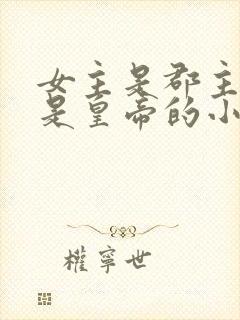 女主是郡主
是皇帝的小
權寧世